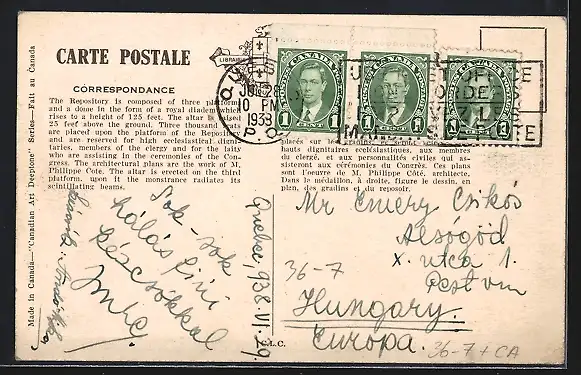 CARTE POSTALE
CORRESPONDANCE
The Repository is composed of three platforms
and a dome in the form of a royal diadem which
rises to a height of 125 feet. The altar is raised
25 feef above the ground. Three thousand seats
are placed upon the platform of the Repository
and are reserved for high ecclesiastical digni-
taries, members of the clergy and for the laity
who are assisting in the ceremonies of the Con-
gress. The architectural plans are the work of M.
Philippe Cote. The altar is erected on the third
platform, upon it the monstrance radiates its
scintillating beams.
placés sur les gradins, et seront
hauts dignitaires ecclésiastiques, aux membres
du clergé, et aux personnalités civiles qui as-
sisteront aux cérémonies du Congrès. Ces plans
sont l'œuvre de M. Philippe Côté, architecte.
Dans le médaillon, à droite, figure le dessin, en
plan, des gradins et du reposoir.
Made in Canada—"Canadian Art Deeptone" Series—Fait au Canada
LIBRAIRIE
CANADA
1 1
CANADA
1 1
CANADA
1 1
10 PM
1938
P.Q.
Sok-sok
hálás fiúi
kézcsókkal
Imre
Quebec, 938 VI. 29.
Mr Emery Csikós
Alsógöd
X. utca 1.
Pest vm
36-7
Hungary.
Europa.
36-7+CA
C.L.C.